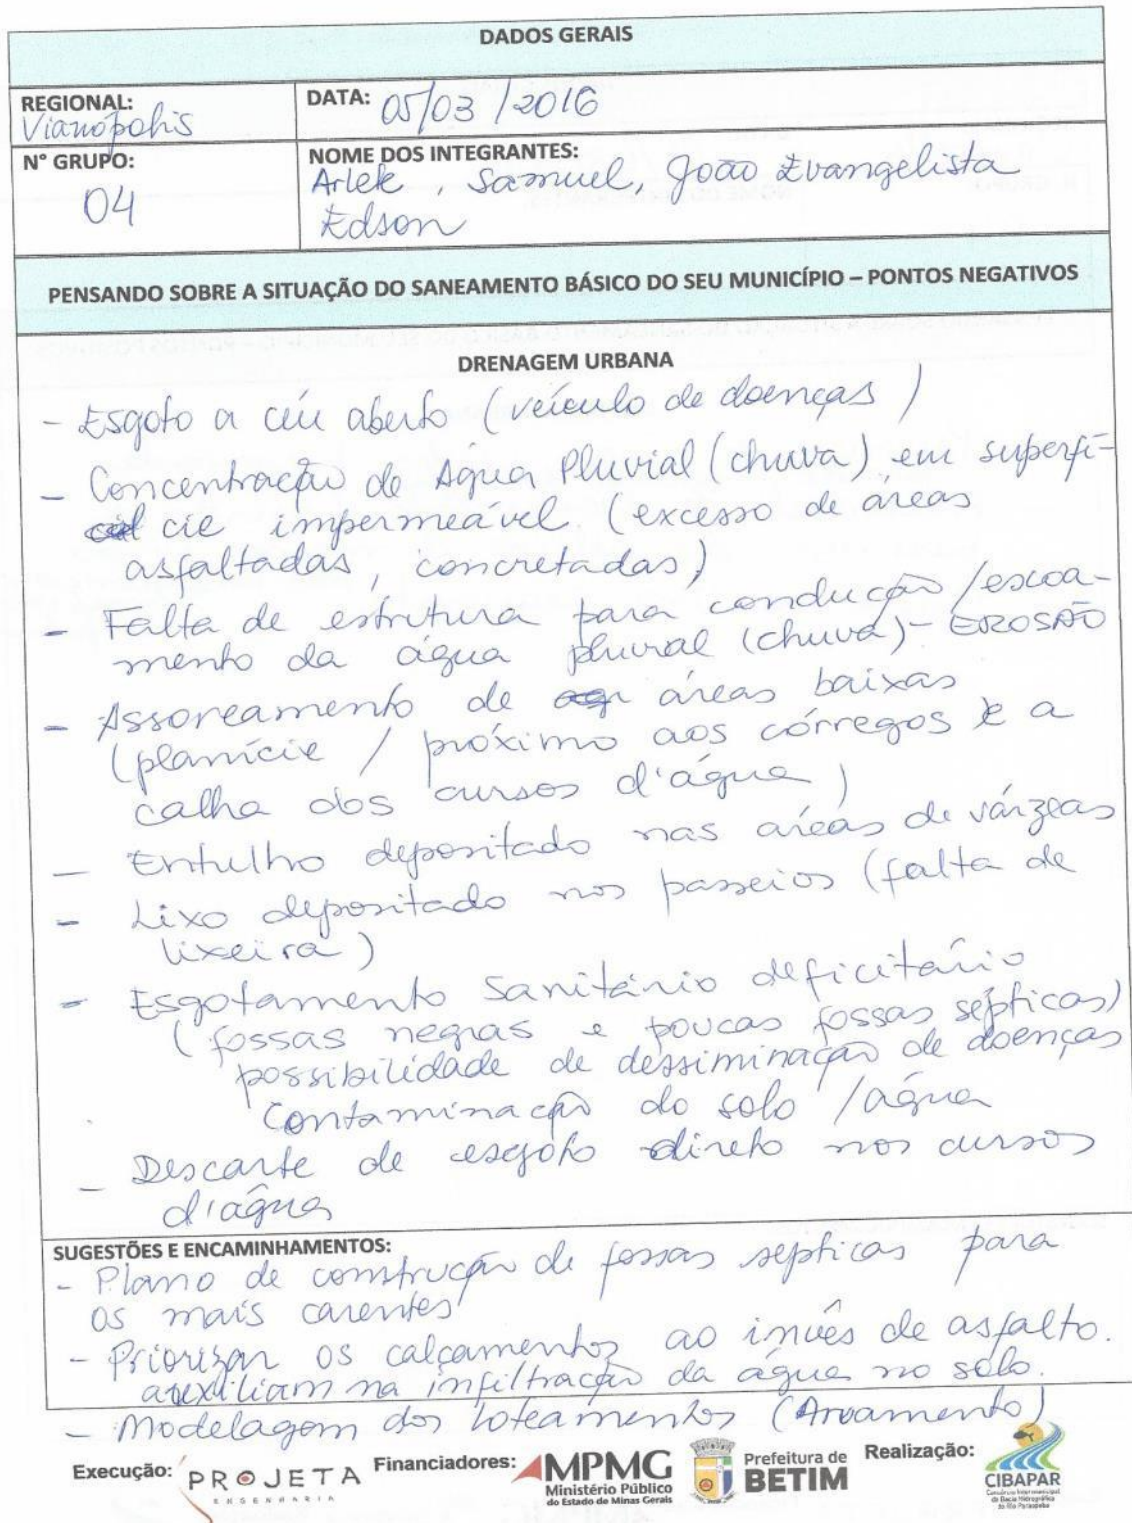 DADOS GERAIS
REGIONAL:
Vianópolis
DATA: 05/03/2016
N° GRUPO:
04
NOME DOS INTEGRANTES:
Arlete, Samuel, João Evangelista
Edson
PENSANDO SOBRE A SITUAÇÃO DO SANEAMENTO BÁSICO DO SEU MUNICÍPIO – PONTOS NEGATIVOS
DRENAGEM URBANA
- Esgoto a céu aberto (veículo de doenças)
- Concentração de Água Pluvial (chuva) em superfí-
cie impermeável (excesso de áreas
asfaltadas, concretadas)
- Falta de estrutura para condução/escoa-
mento da água pluvial (chuva) - EROSÃO
- Assoreamento de áreas baixas
(planície / próximo aos córregos e a
calha dos cursos d'água)
- Entulho depositado nas áreas de várzeas
- Lixo depositado nos passeios (falta de
lixeira)
- Esgotamento Sanitário deficitário
(fossas negras e poucas fossas sépticas)
possibilidade de dessiminação de doenças
Contaminação do solo / água
- Descarte de esgoto direto nos cursos
d'água
SUGESTÕES E ENCAMINHAMENTOS:
- Plano de construção de fossas septicas para
os mais carentes
- Priorizar os calçamentos ao invês de asfalto.
auxiliam na infiltração da água no solo.
- Modelagem dos loteamentos (Arruamento)
Execução: PROJETA ENGENHARIA Financiadores: MPMG Ministério Público do Estado de Minas Gerais Prefeitura de BETIM Realização: CIBAPAR
Consórcio Intermunicipal
da Bacia Hidrográfica
do Rio Paraopeba